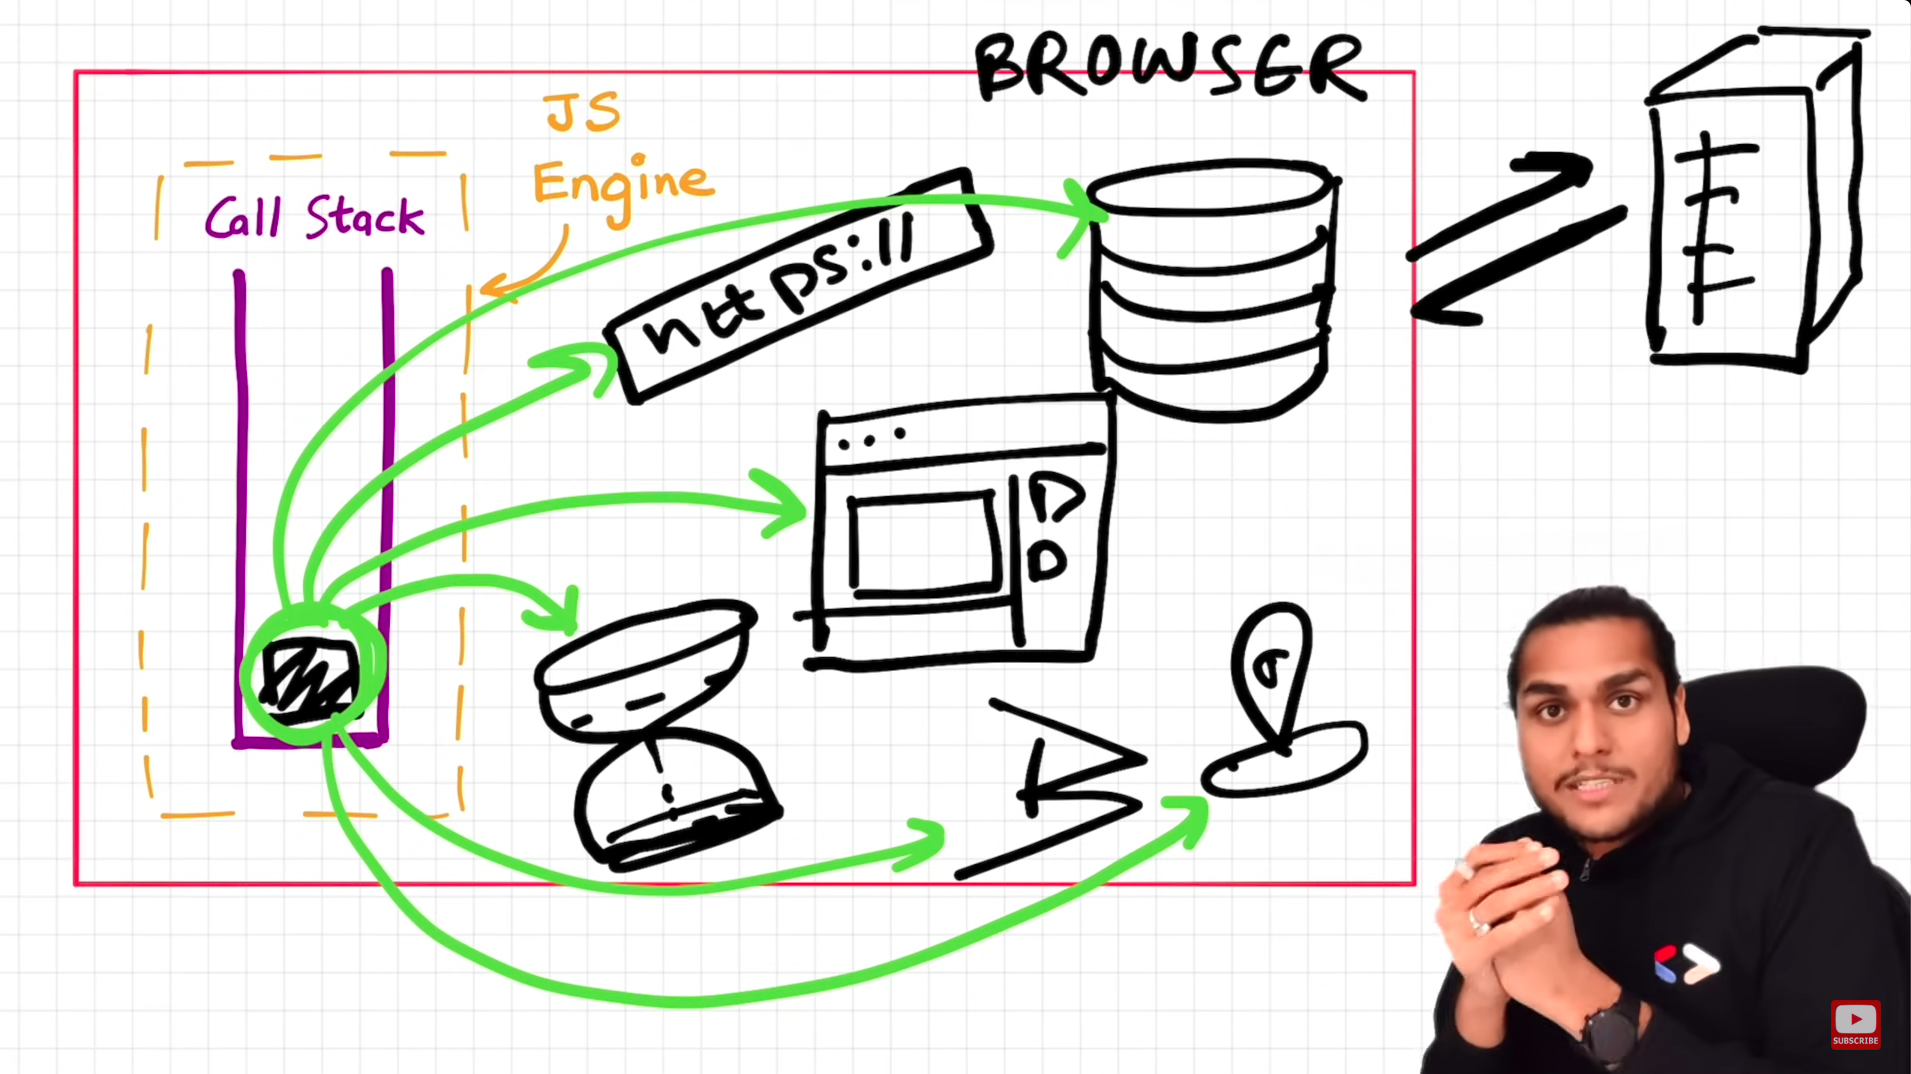 BROWSER
JS
Engine
Call Stack
https://
B
SUBSCRIBE